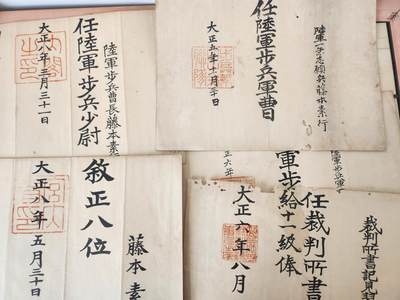 陸軍一年志願兵藤本素行
任陸軍歩兵軍曹
大正五年十月
陸軍歩兵曹長藤本素
任陸軍歩兵少尉
大正八年三月三十一日
陸軍歩兵
軍歩
正六年
裁判所書記見
任裁判所書
給十一級俸
大正六年八月
藤本素
敘正八位
大正八年五月三十日